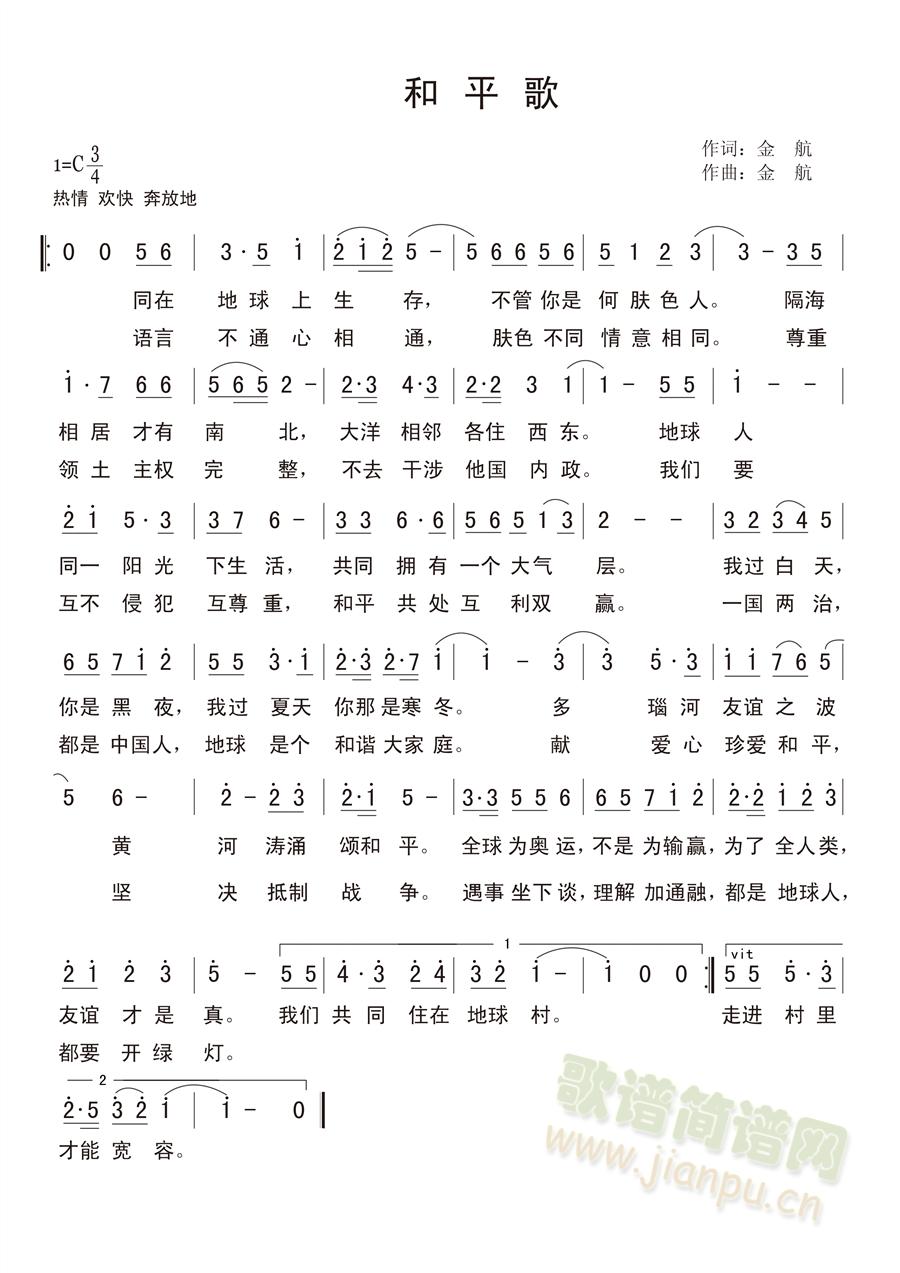 和 平 歌
1=C 3/4
作词：金 航
作曲：金 航
热情 欢快 奔放地
0 0 5 6 | 3 · 5 1 | 2 1 2 5 - | 5 6 6 5 6 | 5 1 2 3 | 3 - 3 5 |
同在 地 球 上 生 存， 不管 你是 何 肤 色 人。 隔海
语言 不 通 心 相 通， 肤色 不同 情 意 相 同。 尊重
1 · 7 6 6 | 5 6 5 2 - | 2 · 3 4 · 3 | 2 · 2 3 1 | 1 - 5 5 | 1 - - |
相 居 才 有 南 北， 大 洋 相 邻 各 住 西 东。 地 球 人
领 土 主 权 完 整， 不 去 干 涉 他 国 内 政。 我 们 要
2 1 5 · 3 | 3 7 6 - | 3 3 6 · 6 | 5 6 5 1 3 | 2 - - | 3 2 3 4 5 |
同一 阳 光 下生 活， 共同 拥 有 一个 大气 层。 我过 白 天，
互不 侵 犯 互尊 重， 和平 共 处 互 利双 赢。 一国 两 治，
6 5 7 1 2 | 5 5 3 · 1 | 2 · 3 2 · 7 1 | 1 - 3 | 3 5 · 3 | 1 1 7 6 5 |
你是 黑 夜， 我过 夏天 你那 是寒 冬。 多 瑙 河 友谊 之 波
都是 中国 人， 地球 是个 和谐 大家 庭。 献 爱 心 珍爱 和 平，
5 6 - | 2 - 2 3 | 2 · 1 5 - | 3 · 3 5 5 6 | 6 5 7 1 2 | 2 · 2 1 2 3 |
黄 河 涛涌 颂和 平。 全球 为奥 运， 不是 为输 赢， 为了 全人 类，
坚 决 抵制 战 争。 遇事 坐下 谈， 理解 加通 融， 都是 地球 人，
1
vit
2 1 2 3 | 5 - 5 5 | 4 · 3 2 4 | 3 2 1 - | 1 0 0 :| 5 5 5 · 3 |
友谊 才 是 真。 我们 共 同 住在 地球 村。 走进 村 里
都要 开 绿 灯。
2
2 · 5 3 2 1 | 1 - 0 |
才能 宽 容。
歌谱简谱网
www.jianpu.cn